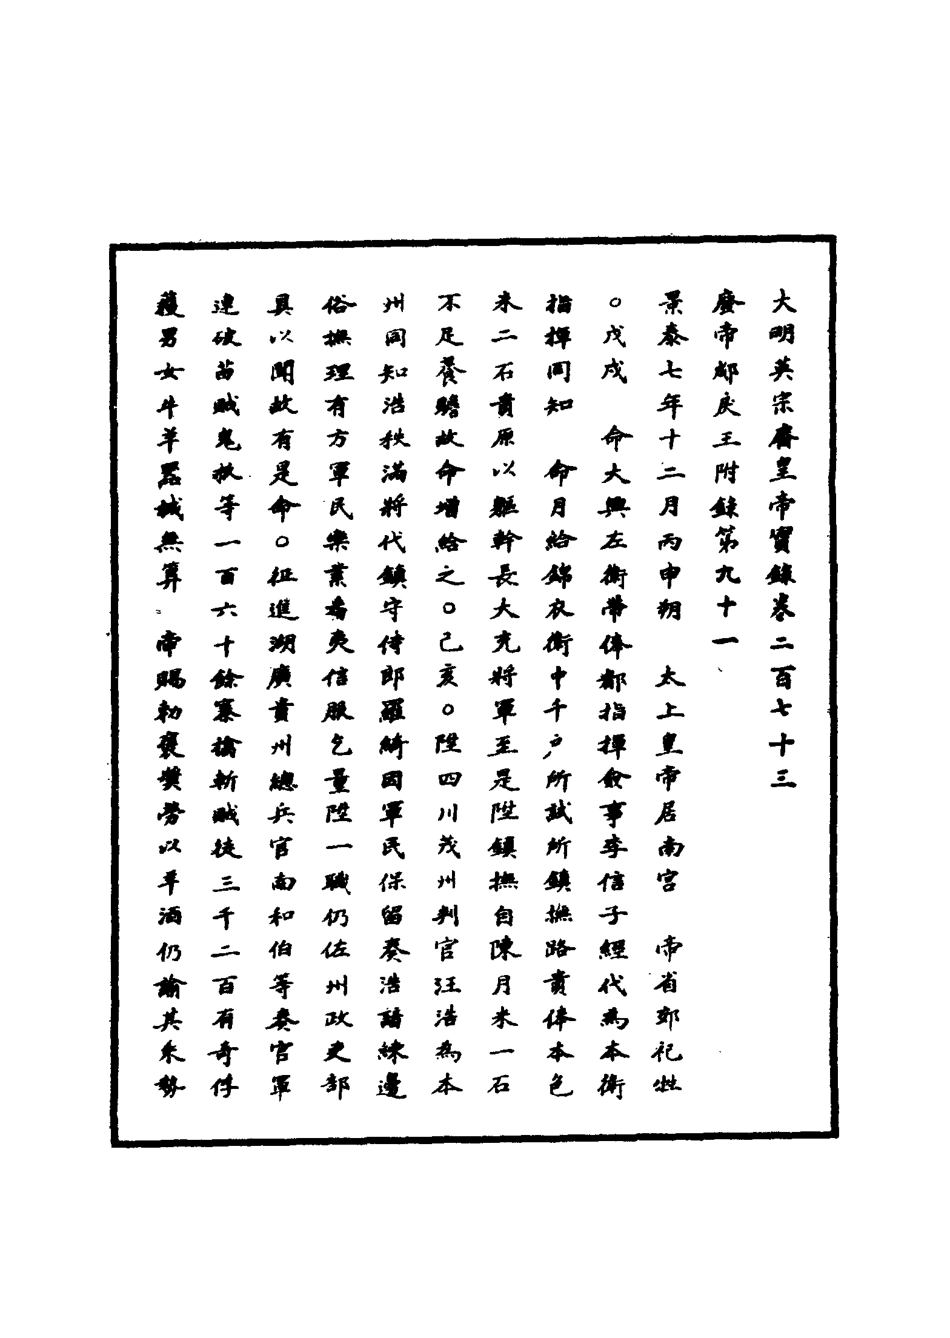 大明英宗睿皇帝實錄卷二百七十三
廢帝郕戾王附錄第九十一
景泰七年十二月丙申朔　太上皇帝居南宮　帝省郊祀牲
○戊戌　命大興左衛帶俸都指揮僉事李信子經代為本衛
指揮同知　命月給錦衣衛中千戶所試所鎮撫路貴俸本色
米二石貴原以軀幹長大充將軍至是陞鎮撫自陳月米一石
不足養贍故命增給之○己亥○陞四川茂州判官汪浩為本
州同知浩秩滿將代鎮守侍郎羅綺因軍民保留奏浩諳練邊
俗撫理有方軍民樂業番夷信服乞量陞一職仍佐州政吏部
具以聞故有是命○征進湖廣貴州總兵官南和伯等奏官軍
連破苗賊鬼板等一百六十餘寨擒斬賊徒三千二百有奇俘
獲男女牛羊器械無算　帝賜勑褒奬勞以羊酒仍諭其乘勢